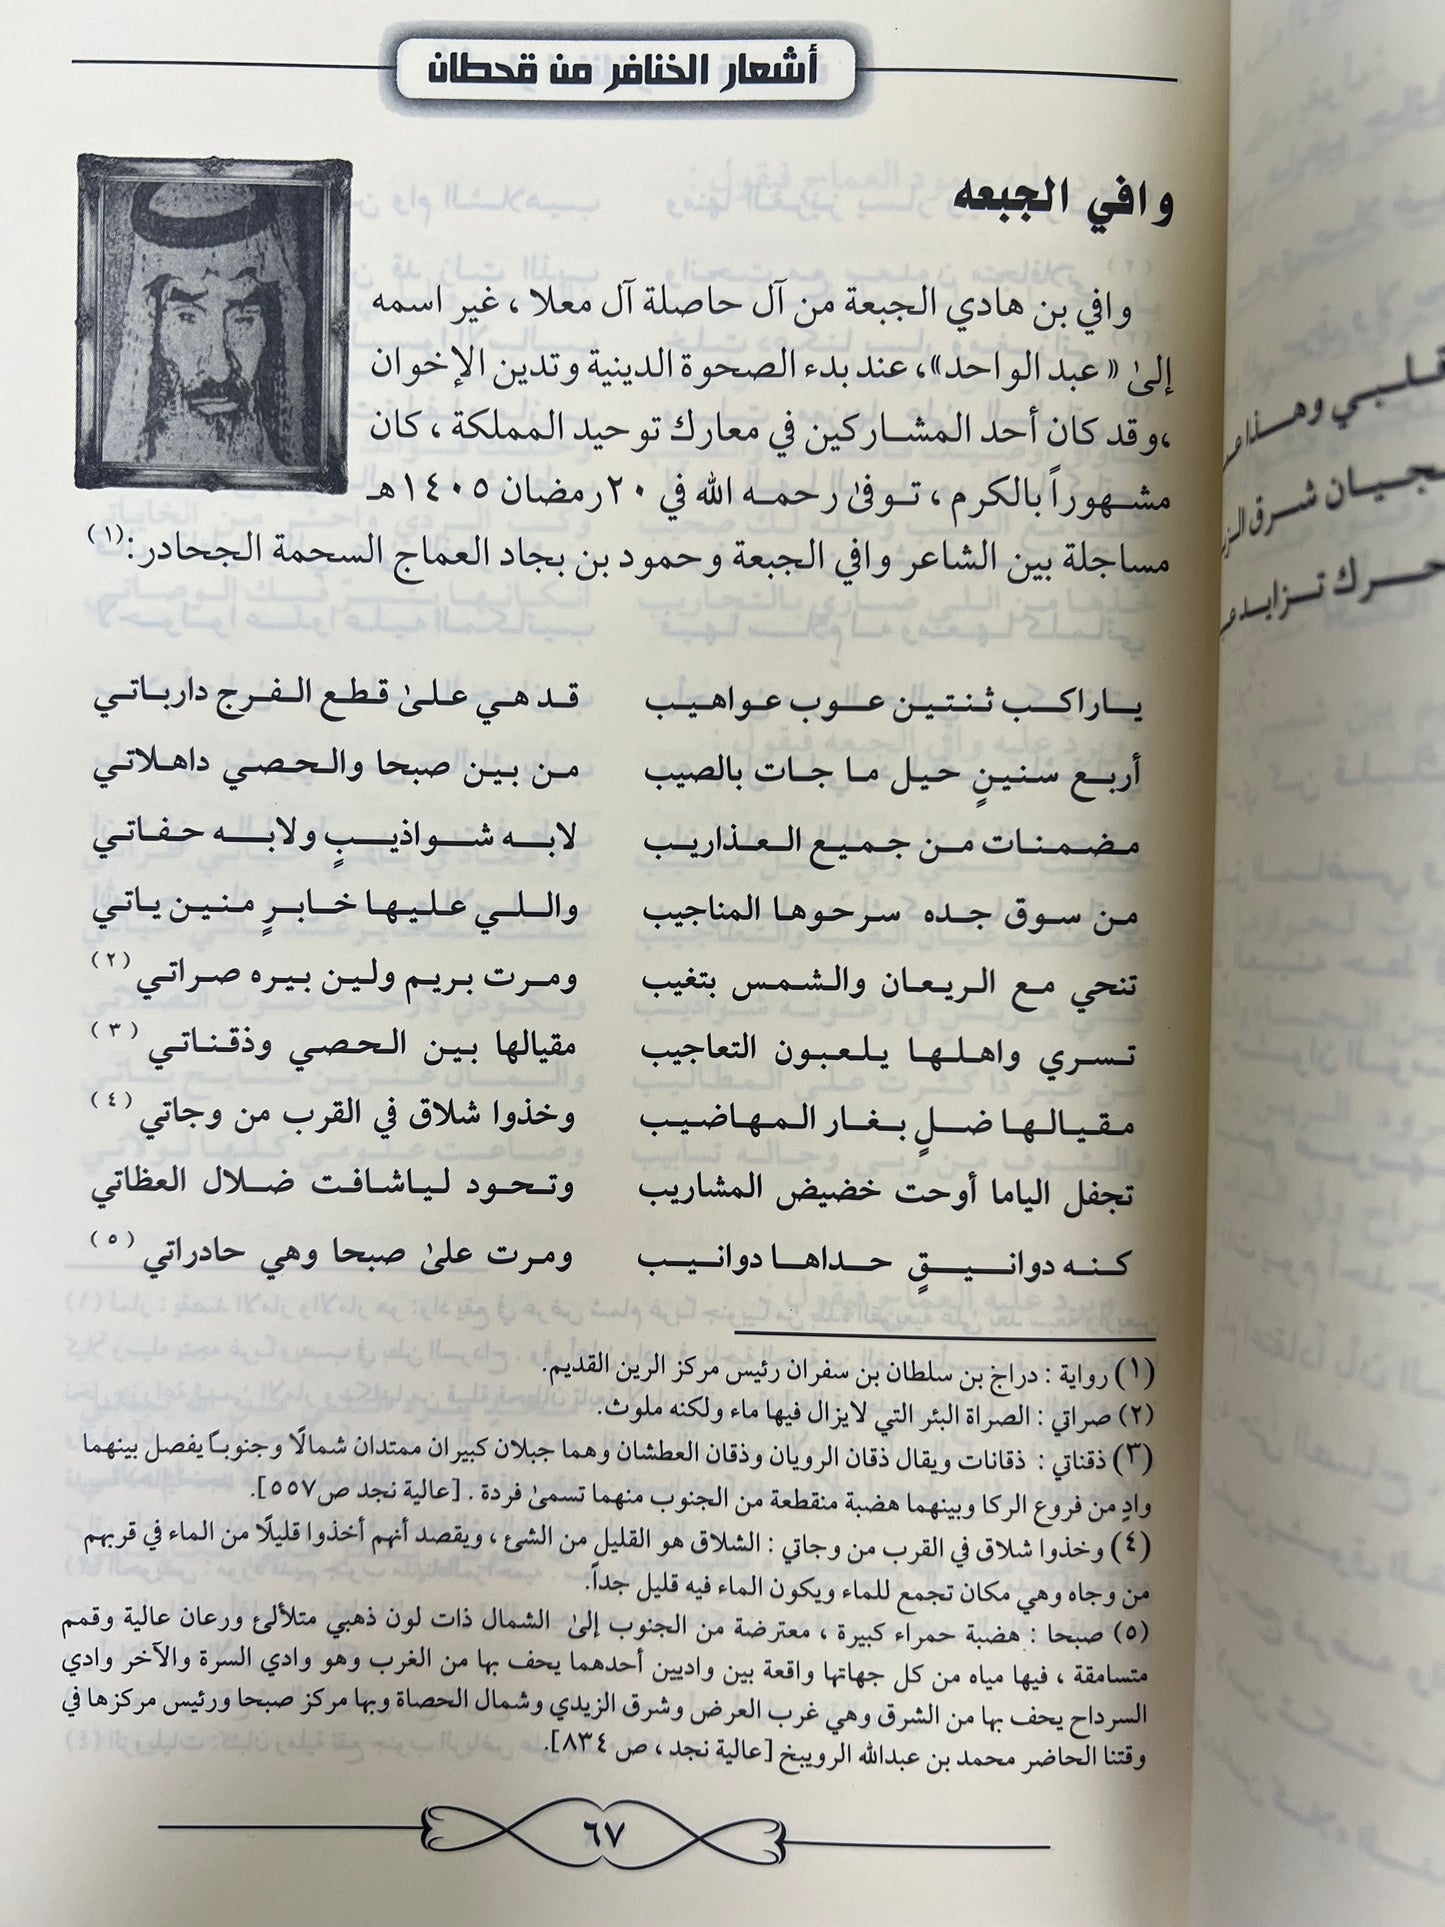 أشعار الخنافر من قحطان
وافي الجبعه
وافي بن هادي الجبعة من آل حاصلة آل معلا ، غير اسمه
إلىٰ «عبد الواحد»، عند بدء الصحوة الدينية وتدين الإخوان
،وقد كان أحد المشاركين في معارك توحيد المملكة ، كان
مشهوراً بالكرم ، توفىٰ رحمه الله في ٢٠رمضان ١٤٠٥هـ
مساجلة بين الشاعر وافي الجبعة وحمود بن بجاد العماج السحمة الجحادر:(١)
ياراكب ثنتين عوب عواهيب قد هي علىٰ قطع الفرج دارباتي
أربع سنينٍ حيل ما جات بالصيب من بين صبحا والحصي داهلاتي
مضمنات من جميع العذاريب لابه شواذيبٍ ولابه حفاتي
من سوق جده سرحوها المناجيب واللي عليها خابرٍ منين ياتي
تنحي مع الريعان والشمس بتغيب ومرت بريم ولين بيره صراتي (٢)
تسري واهلها يلعبون التعاجيب مقيالها بين الحصي وذقناتي (٣)
مقيالها ضلٍ بغار المهاضيب وخذوا شلاق في القرب من وجاتي (٤)
تجفل الياما أوحت خضيض المشاريب وتحود لياشافت ضلال العظاتي
كنه دوانيقٍ حداها دوانيب ومرت علىٰ صبحا وهي حادراتي (٥)
(١) رواية : دراج بن سلطان بن سفران رئيس مركز الرين القديم.
(٢) صراتي : الصراة البئر التي لايزال فيها ماء ولكنه ملوث.
(٣) ذقناتي : ذقانات ويقال ذقان الرويان وذقان العطشان وهما جبلان كبيران ممتدان شمالًا وجنوباً يفصل بينهما
وادٍ من فروع الركا وبينهما هضبة منقطعة من الجنوب منهما تسمىٰ فردة . [عالية نجد ص٥٥٧].
(٤) وخذوا شلاق في القرب من وجاتي : الشلاق هو القليل من الشئ ، ويقصد أنهم أخذوا قليلًا من الماء في قربهم
من وجاه وهي مكان تجمع للماء ويكون الماء فيه قليل جداً.
(٥) صبحا : هضبة حمراء كبيرة ، معترضة من الجنوب إلىٰ الشمال ذات لون ذهبي متلألئ ورعان عالية وقمم
متسامقة ، فيها مياه من كل جهاتها واقعة بين واديين أحدهما يحف بها من الغرب وهو وادي السرة والآخر وادي
السرداح يحف بها من الشرق وهي غرب العرض وشرق الزيدي وشمال الحصاة وبها مركز صبحا ورئيس مركزها في
وقتنا الحاضر محمد بن عبدالله الرويبخ [عالية نجد ، ص ٨٣٤].
٦٧